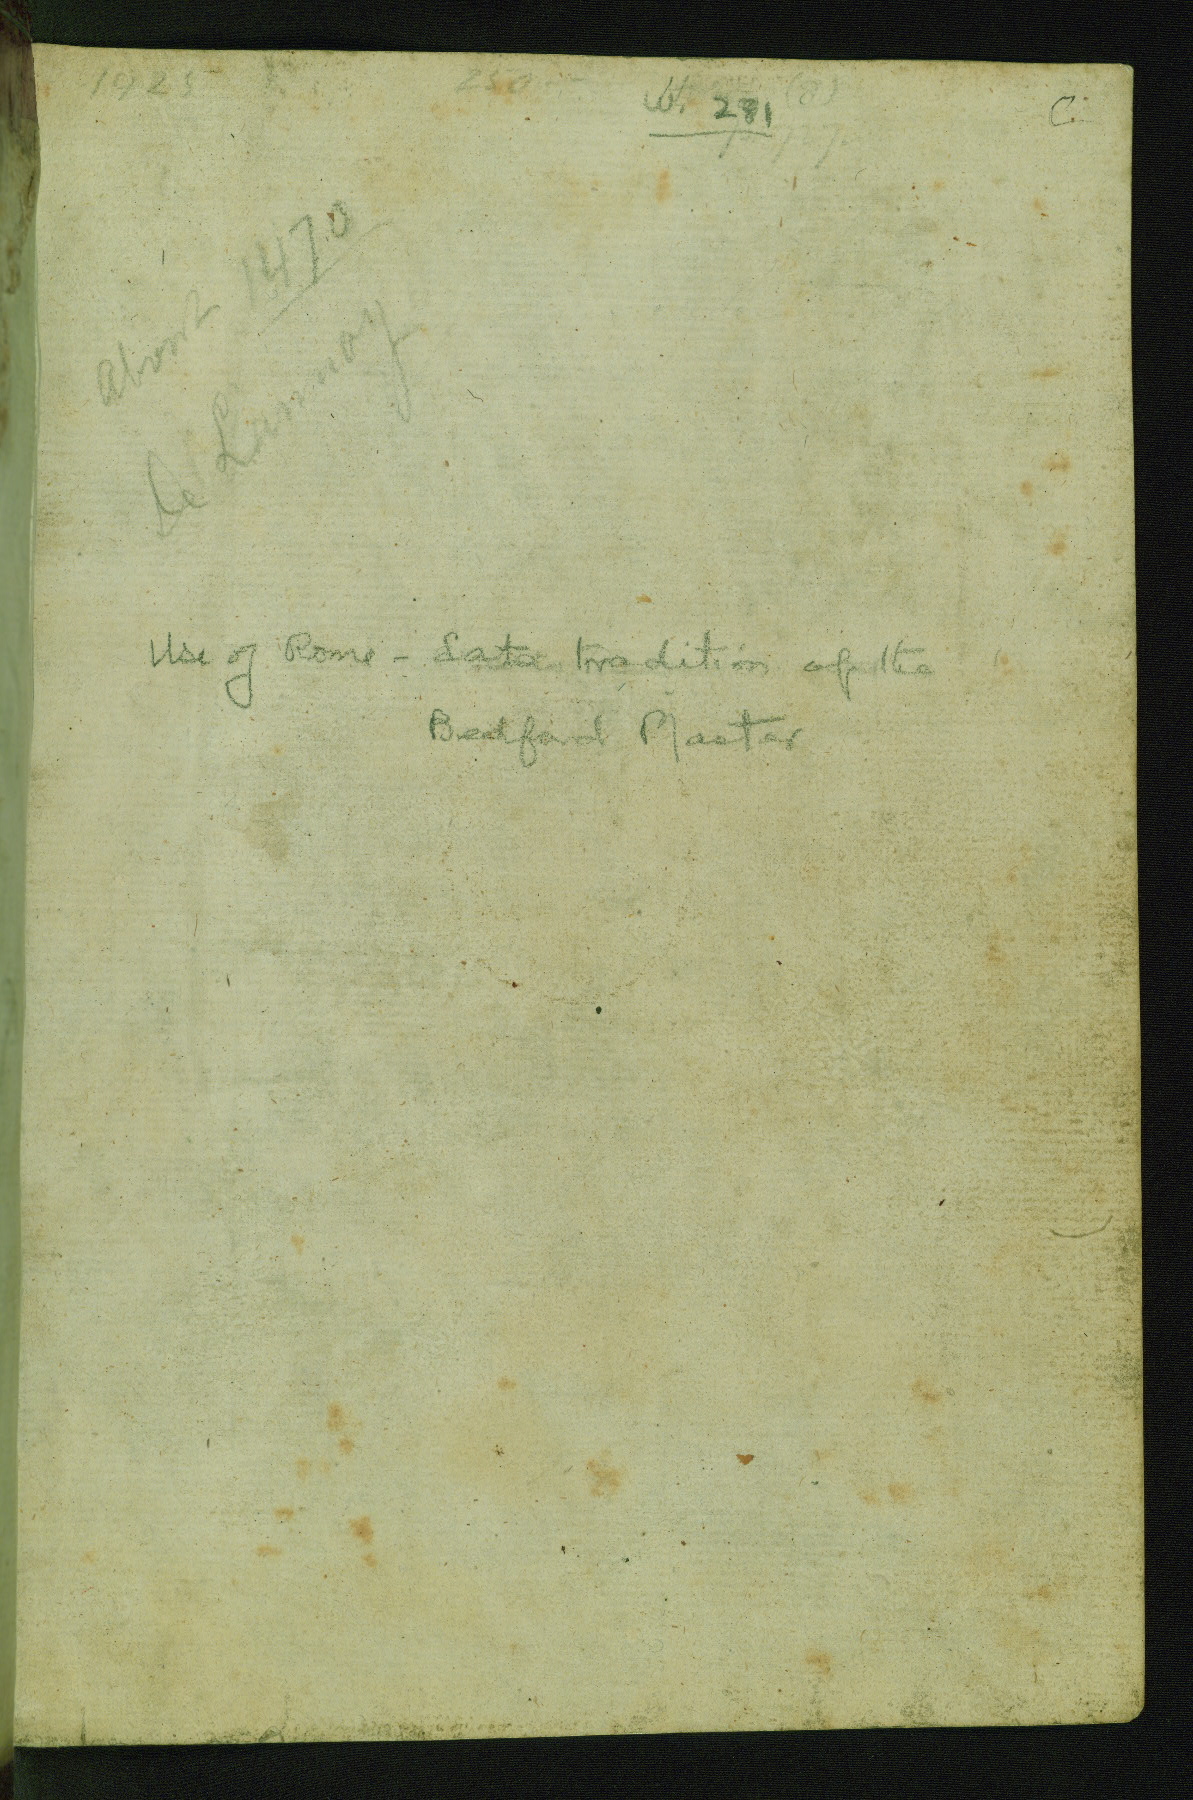 1925
250
(8)
W. 281
C.
about 1470
De Lannoy
Use of Rome - Late tradition of the
Bedford Master